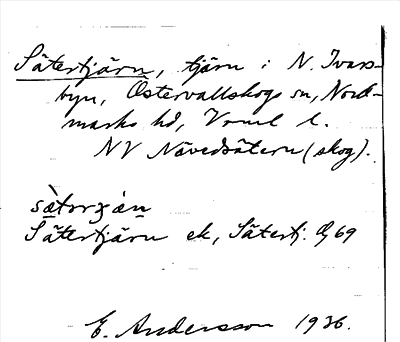 Sätertjärn, tjärn i N. Ivars-
byn, Östervallskogs sn, Nord-
marks hd, Vrml l.
NV Nävedsätern (skog).
Sätertjärn ek, Sätertj.
E. Andersson 1936.